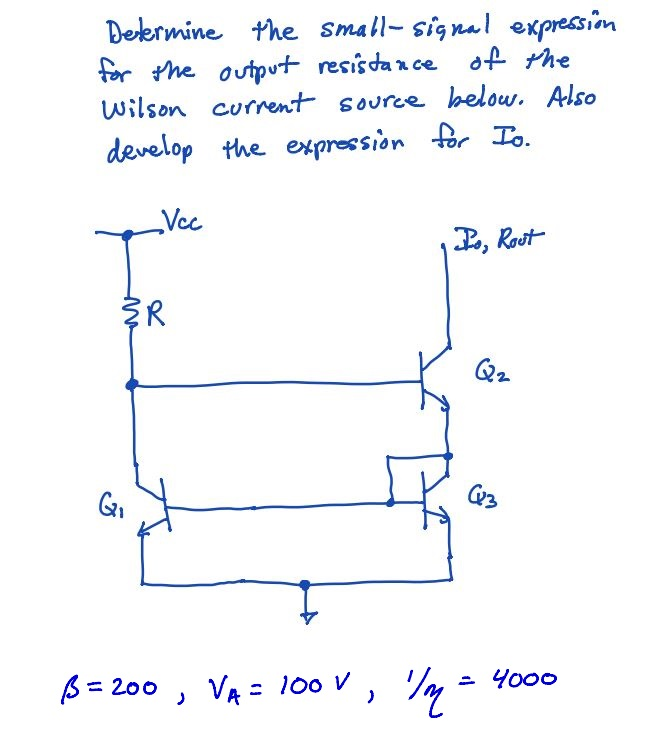 Determine the small-signal expression
for the output resistance of the
Wilson current source below. Also
develop the expression for Io.
Vcc
Io, Rout
R
Q2
Q1
Q3
β = 200 , VA = 100 V , 1/η = 4000